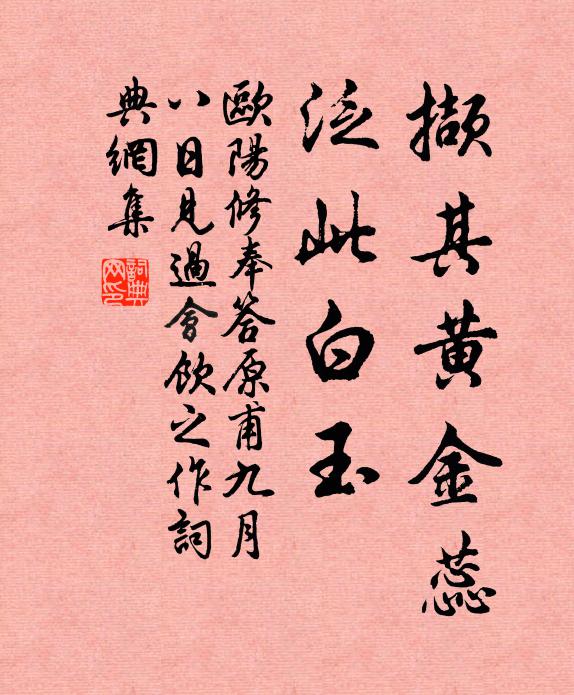 擷其黄金蕊
泛此白玉
歐陽修奉答原甫九月
八日見過會飲之作詞
典網集
詞典網印